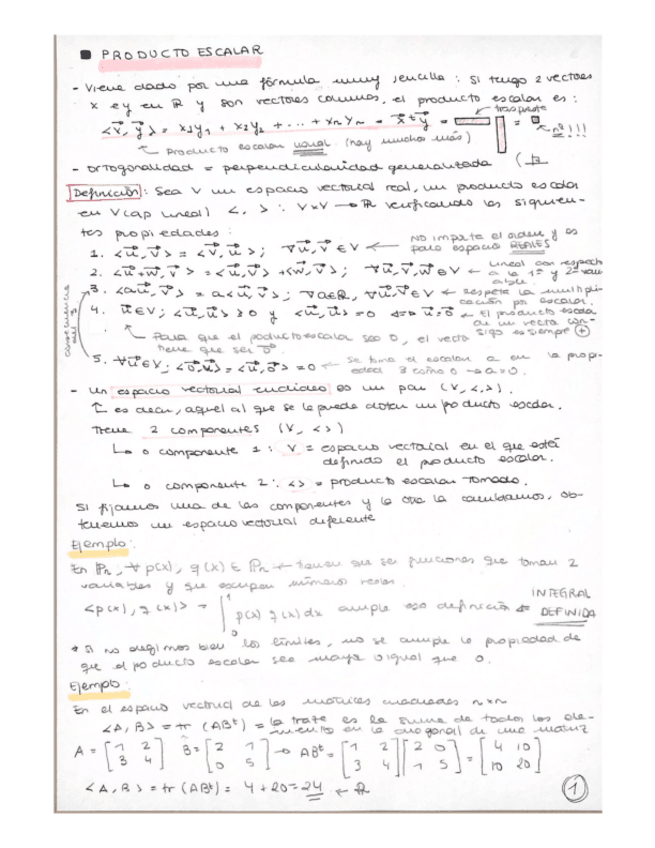 ■ PRODUCTO ESCALAR
- Viene dado por una fórmula muy sencilla: Si tengo 2 vectores
x e y en ℝ y son vectores columnas, el producto escalar es:
traspuesto
<x⃗, y⃗> = x₁y₁ + x₂y₂ + ... + xₙyₙ = x⃗ᵗy⃗ = = nº!!!
producto escalar usual (hay muchos más)
- Ortogonalidad = perpendicularidad generalizada
Definición: Sea V un espacio vectorial real, un producto escalar
en V (ap lineal) < , > : V×V → ℝ verificando las siguien-
tes propiedades:
1. <u⃗, v⃗> = <v⃗, u⃗>; ∀u⃗, v⃗ ∈ V ← NO importa el orden y es
para espacio REALES
2. <u⃗+w⃗, v⃗> = <u⃗, v⃗> + <w⃗, v⃗>; ∀u⃗, v⃗, w⃗ ∈ V ← lineal con respecto
a la 1ª y 2ª vari
able.
3. <au⃗, v⃗> = a<u⃗, v⃗>; ∀a∈ℝ, ∀u⃗, v⃗ ∈ V ← Respeta la multipli-
cación por escalar.
4. u⃗ ∈ V; <u⃗, u⃗> ≥ 0 y <u⃗, u⃗> = 0 ⟺ u⃗ = 0⃗ ← El producto escalar
de un vector con-
sigo es siempre ⊕
Para que el producto escalar sea 0, el vector
tiene que ser 0⃗
consecuencia del 3
5. ∀u⃗ ∈ V; <0⃗, u⃗> = <u⃗, 0⃗> = 0 ← Se toma el escalar a en la propi-
edad 3 como 0 → a=0.
- Un espacio vectorial euclideo es un par (V, <,>).
↑ es decir, aquel al que se le puede dotar un producto escalar.
Tiene 2 componentes (V, <>)
↳ o componente 1: V = espacio vectorial en el que está
definido el producto escalar.
↳ o componente 2: <> = producto escalar tomado.
Si fijamos una de las componentes y la otra la cambiamos, ob-
tenemos un espacio vectorial diferente
Ejemplo:
En ℙₙ, ∀ p(x), q(x) ∈ ℙₙ → tienen que ser funciones que toman 2
variables y que escupen números reales.
<p(x), q(x)> = ∫₀¹ p(x) q(x) dx cumple esa definición ← INTEGRAL
DEFINIDA
* Si no elegimos bien los límites, no se cumple la propiedad de
que el producto escalar sea mayor o igual que 0.
Ejemplo:
En el espacio vectorial de las matrices cuadradas n×n
<A, B> = tr (ABᵗ) = la traza es la suma de todos los ele-
mentos en la diagonal de una matriz
A = [1 2; 3 4] B = [2 1; 0 5] → ABᵗ = [1 2; 3 4] [2 0; 1 5] = [4 10; 10 20]
<A, B> = tr (ABᵗ) = 4 + 20 = 24 ← ℝ
1